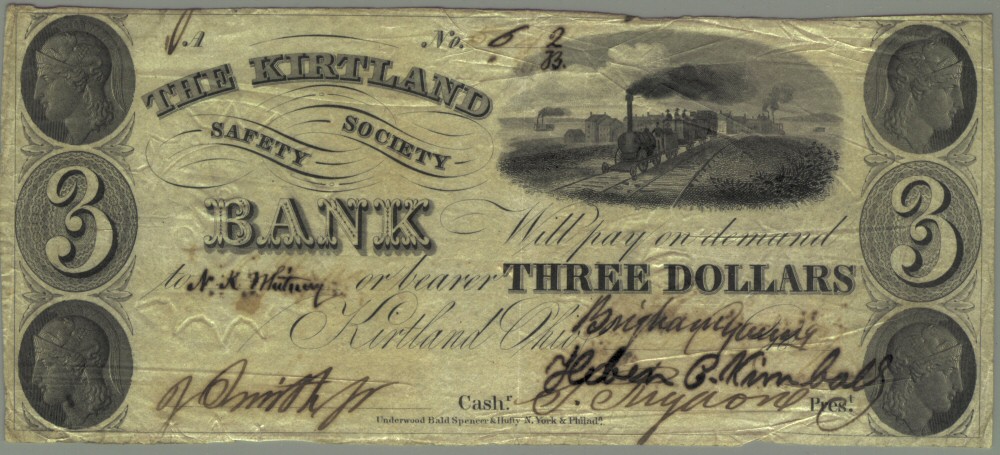 A No. 6 2
83.
THE KIRTLAND
SAFETY SOCIETY
BANK
3 3
Will pay on demand
to N. K. Whitney or bearer THREE DOLLARS
Kirtland Ohio Brigham Young
Heber C. Kimball
J Smith jr Cashr. S. Rigdon Prest.
Underwood Bald Spencer & Hufty N. York & Philada.